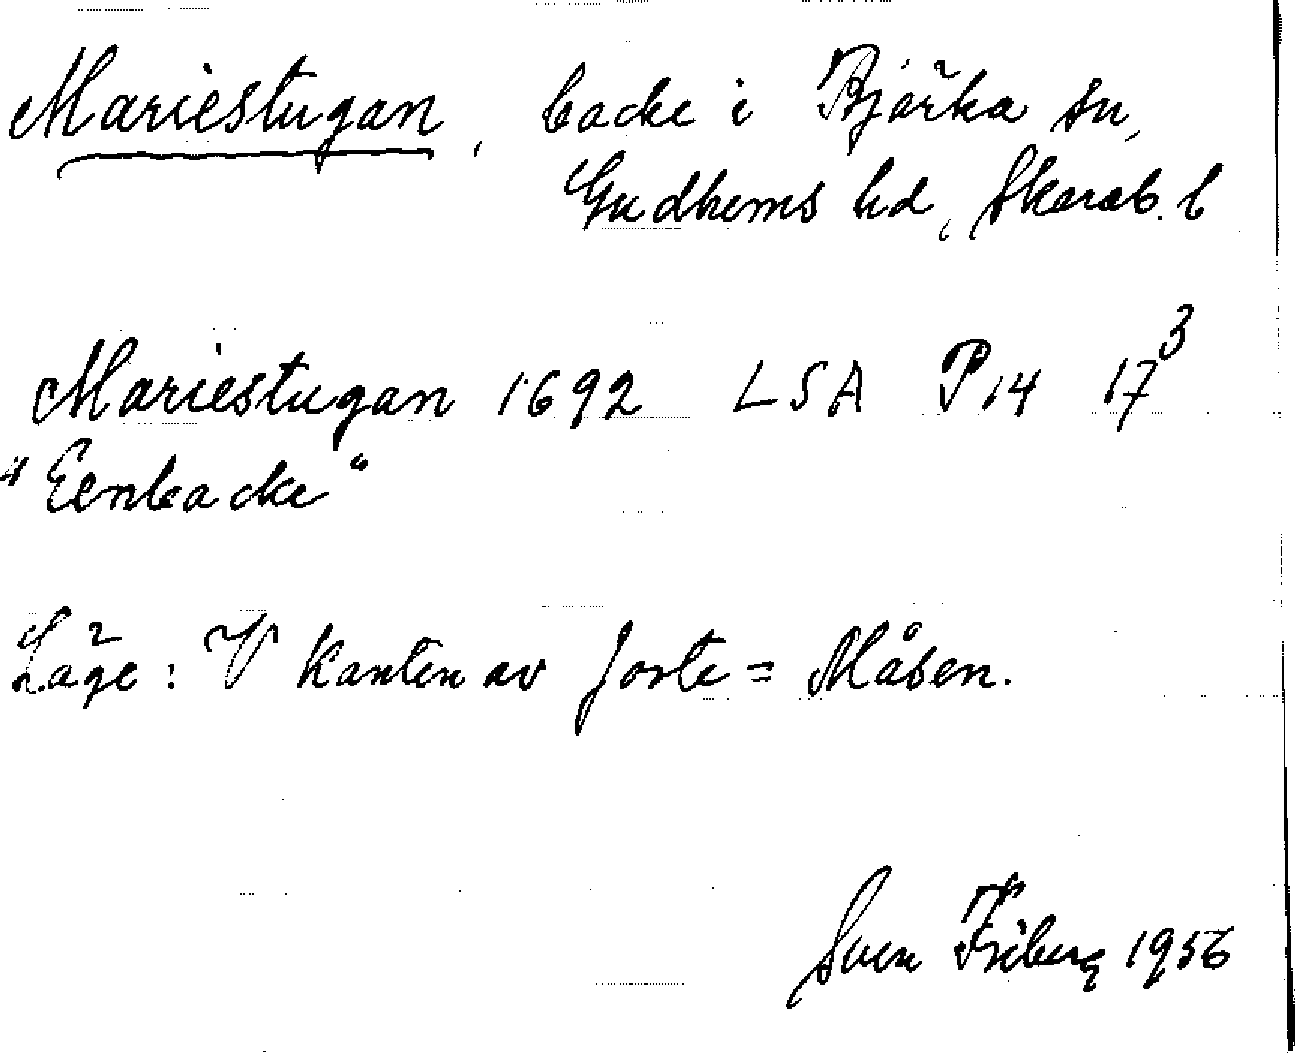 Mariestugan, backe i Bjärka sn,
Gudhems hd, Skarab. l
Mariestugan 1692 LSA P14 17³
"Eenbacke"
Läge: V kanten av Jorte = Måsen.
Sven Friberg 1956